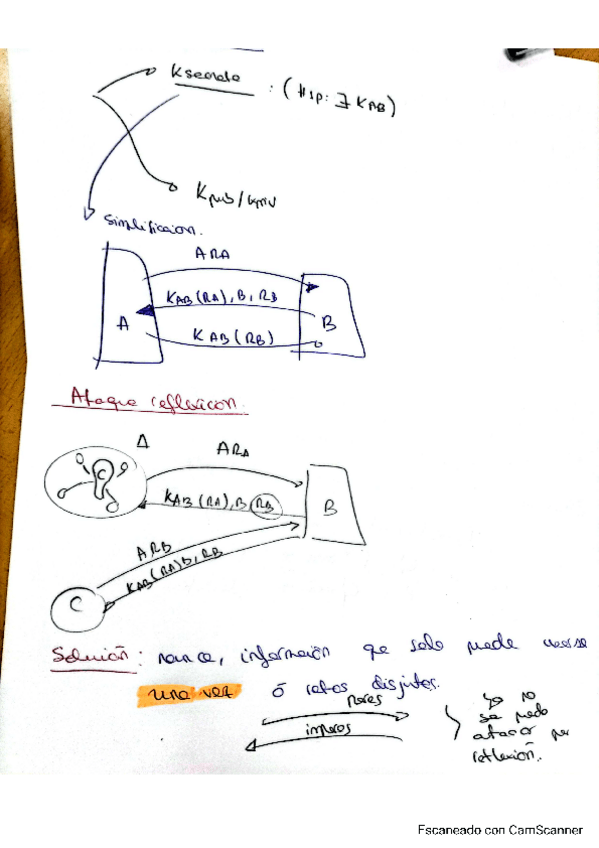 Ksecreta : (Hip: ∃ KAB)
Kpub/Kpriv
Simplificacion.
ARA
KAB(RA), B, RB
A
B
KAB(RB)
Ataque reflexion.
A
ARA
C
KAB(RA), B, RB
B
ARB
KAB(RA)B, RB
C
Solución: nonce, información que solo puede usarse
una vez ó retos disjuntos.
pares
impares
no
se puede
atacar por
reflexión.
Escaneado con CamScanner